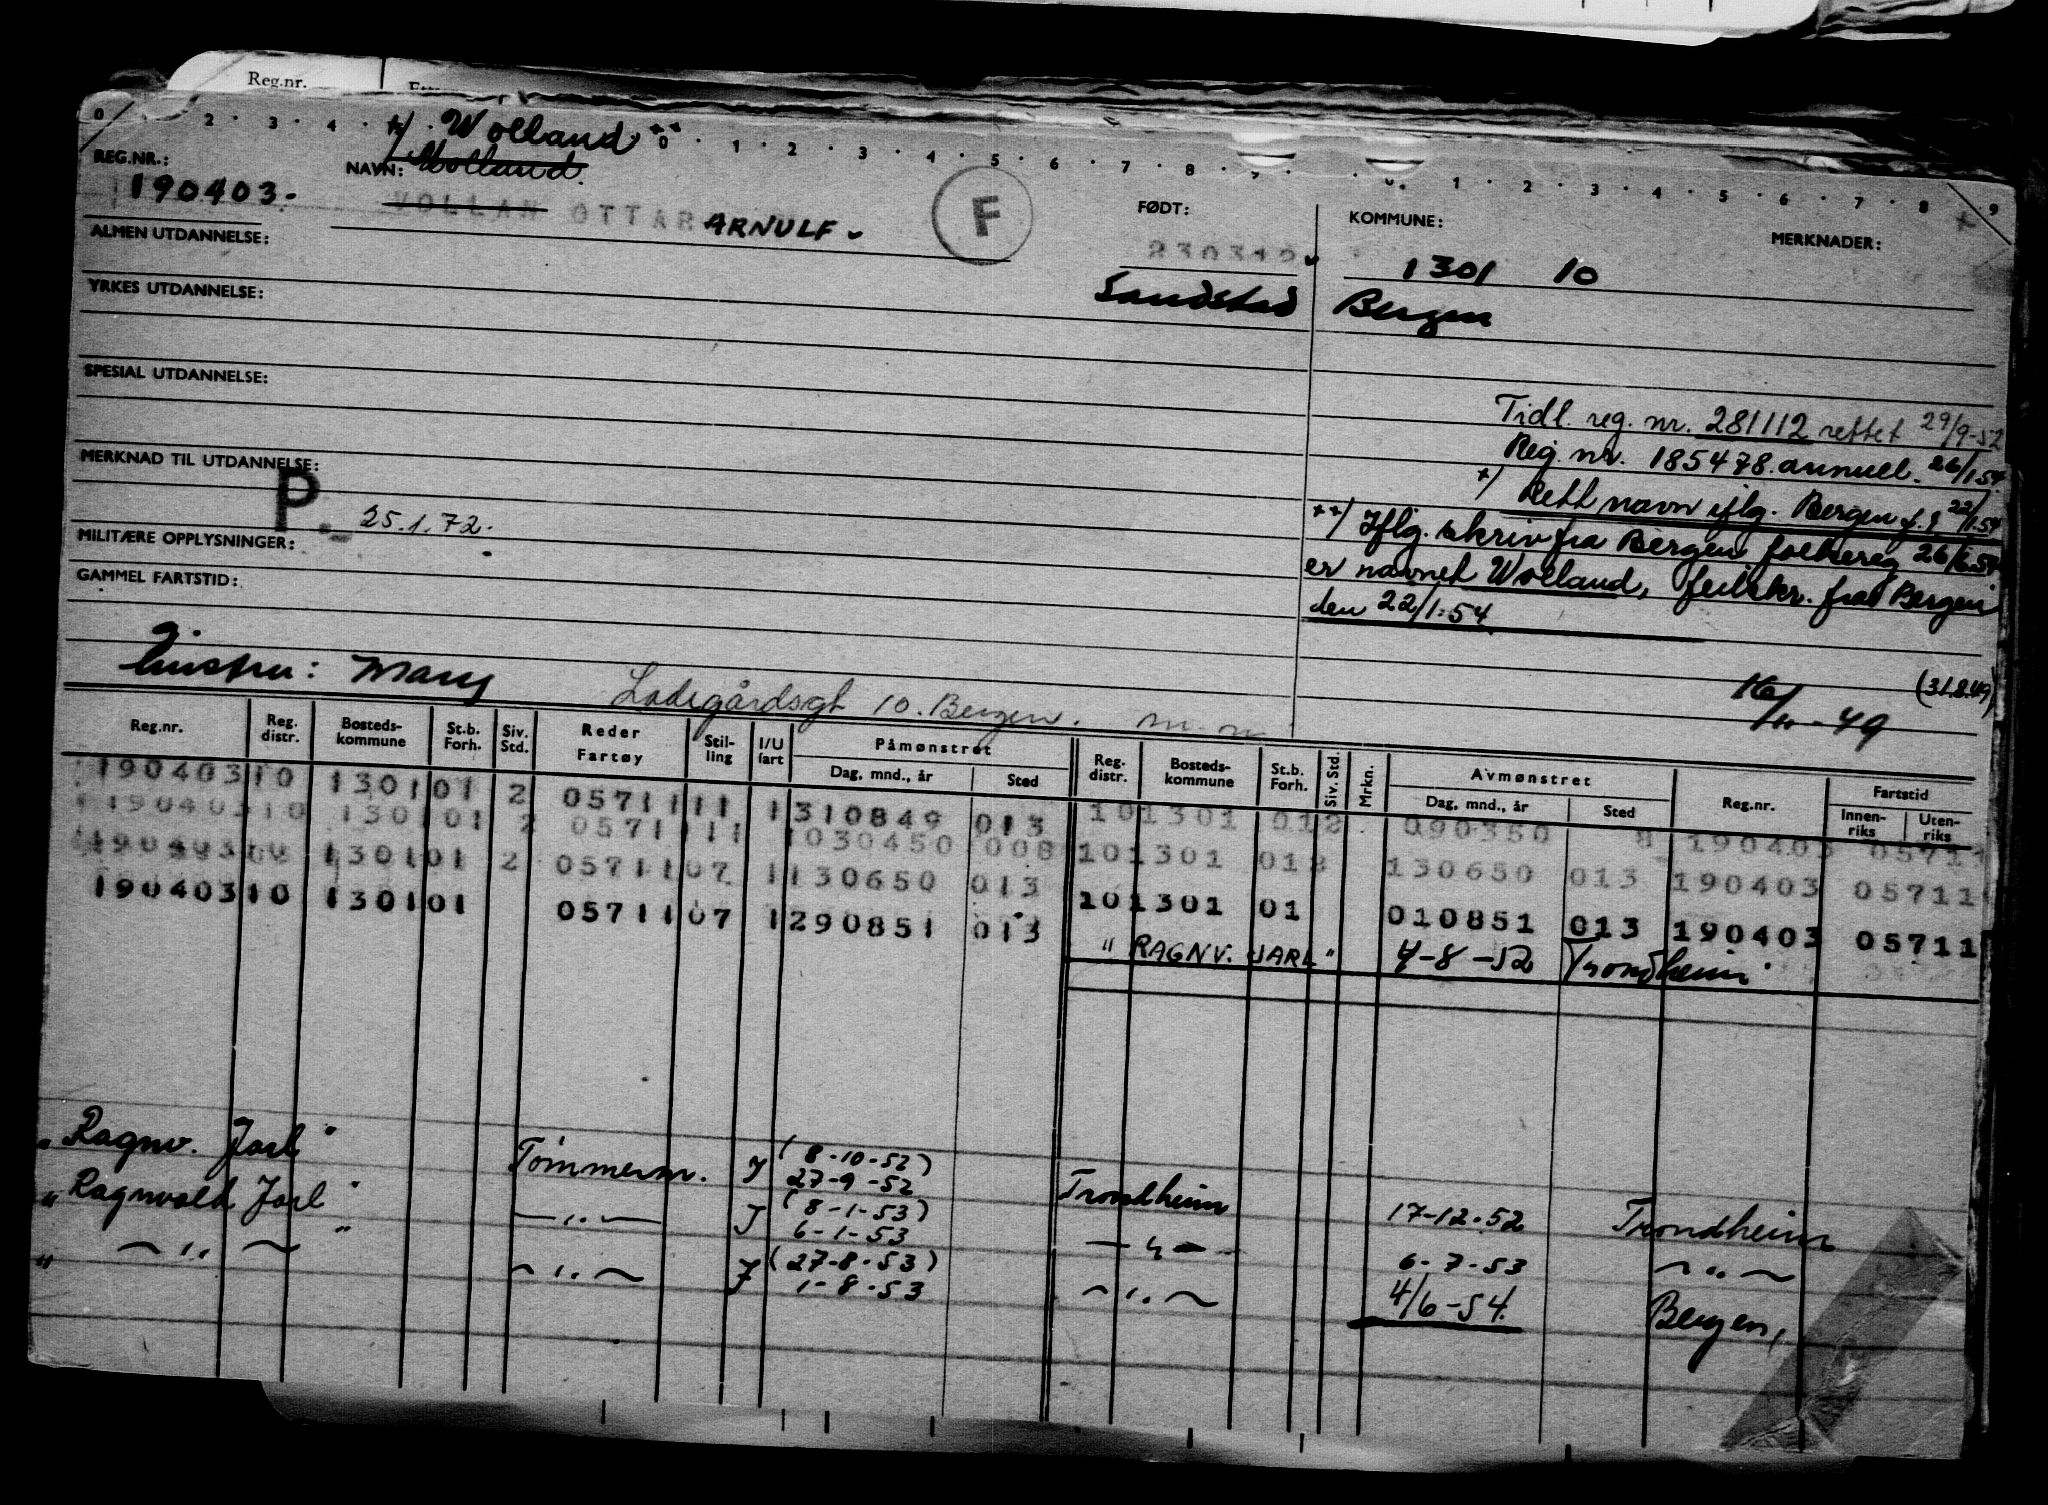 Reg.nr.
0 2 · 3 · 4 · +/ Wolland ++ 0 · 1 · 2 · 3 · 4 · 5 · 6 · 7 · 8 · 9 · 0 · 1 · 2 · 3 · 4 · 5 · 6 · 7 · 8 · 9
REG.NR.: NAVN: Wolland.
190403. VOLLAN OTTAR ARNULF F
FØDT: KOMMUNE: MERKNADER:
ALMEN UTDANNELSE:
230312 1301 10
YRKES UTDANNELSE: Sandstad Bergen
SPESIAL UTDANNELSE:
Tidl. reg. nr. 281112 rettet 29/9-52
Reg. nr. 185478 annull. 26/1.54
MERKNAD TIL UTDANNELSE:
+/ Rett navn iflg. Bergen f.r. 22/1.54
P. 25.1.72.
++/ Iflg. skriv fra Bergen folkereg 26/6.54
MILITÆRE OPPLYSNINGER:
er navnet Wolland, feilskr. fra Bergen
GAMMEL FARTSTID:
den 22/1.54
Hustru: Mary Ladegårdsgt 10. Bergen.
16/10-49 (31.8.49)
Reg.nr. Reg. distr. Bosteds- kommune St.b. Forh. Siv. Std. Reder Fartøy Stil- ling I/U fart Påmønstret Dag, mnd., år Sted Reg. distr. Bosteds- kommune St.b. Forh. Siv. Std. Mrkn. Avmønstret Dag, mnd., år Sted Reg.nr. Fartstid Innen- riks Uten- riks
190403 10 1301 01 2 05711 11 1 310849 013 10 1301 01 2 090350 8 190403 05711
190403 10 1301 01 2 05711 11 1 030450 008 10 1301 01 2 130650 013 190403 05711
190403 10 1301 01 2 05711 07 1 130650 013 10 1301 01 010851 013 190403 05711
190403 10 1301 01 05711 07 1 290851 013 "RAGNV. JARL" 4-8-52 Trondheim
"Ragnv. Jarl" Tømmerm. I (8-10-52) 27-9-52 Trondheim 17-12-52 Trondheim
"Ragnvald Jarl" —"— I (8-1-53) 6-1-53 —"— 6-7-53 —"—
" —"— " —"— I (27-8-53) 1-8-53 —"— 4/6-54. Bergen,